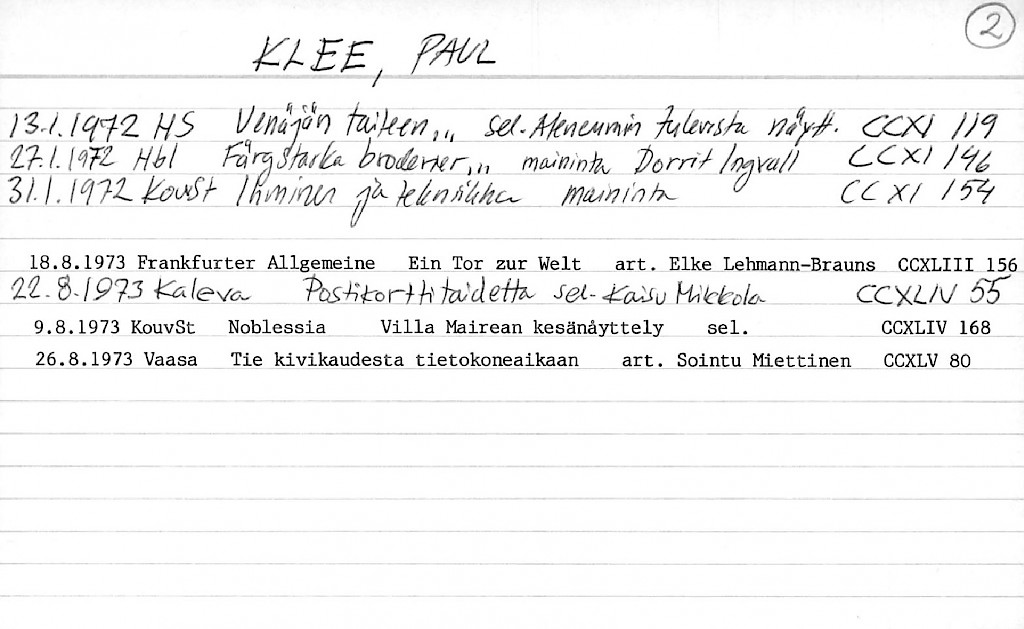 2
KLEE, PAUL
13.1.1972 HS Venäjän taiteen,,, sel. Ateneumin tulevista näytt. CCXI 119
27.1.1972 Hbl Färgstarka broderier,,, maininta Dorrit Ingvall CCXI 146
31.1.1972 KouvSt Ihminen ja tekniikka maininta CCXI 154
18.8.1973 Frankfurter Allgemeine Ein Tor zur Welt art. Elke Lehmann-Brauns CCXLIII 156
22.8.1973 Kaleva Postikorttitaidetta sel. Kaisu Mikkola CCXLIV 55
9.8.1973 KouvSt Noblessia Villa Mairean kesänåyttely sel. CCXLIV 168
26.8.1973 Vaasa Tie kivikaudesta tietokoneaikaan art. Sointu Miettinen CCXLV 80